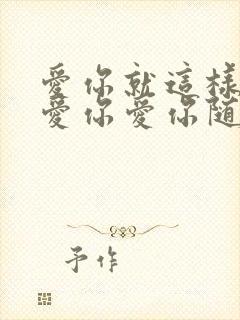 愛你就這樣
愛你愛你随
予作